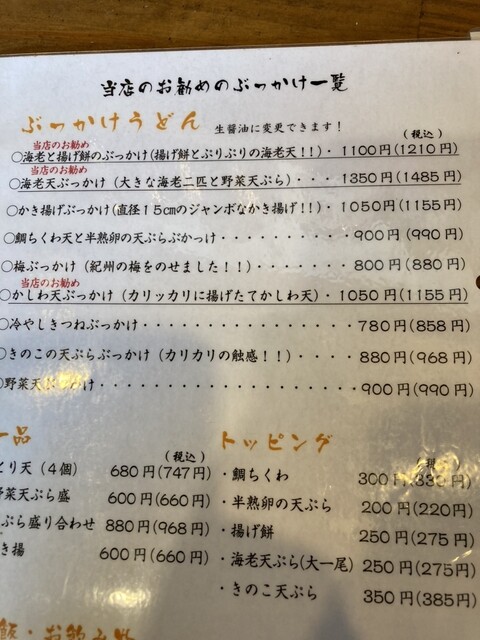 当店のお勧めのぶっかけ一覧
ぶっかけうどん 生醤油に変更できます! (税込)
当店のお勧め
○海老と揚げ餅のぶっかけ(揚げ餅とぷりぷりの海老天!!)・1100円(1210円)
当店のお勧め
○海老天ぶっかけ(大きな海老二匹と野菜天ぷら)・・・1350円(1485円)
○かき揚げぶっかけ(直径15㎝のジャンボなかき揚げ!!)・1050円(1155円)
○鯛ちくわ天と半熟卵の天ぷらぶかっけ・・・・・・・・900円(990円)
○梅ぶっかけ(紀州の梅をのせました!!)・・・・・・・・800円(880円)
当店のお勧め
○かしわ天ぶっかけ(カリッカリに揚げたてかしわ天)・1050円(1155円)
○冷やしきつねぶっかけ・・・・・・・・・・・・・・・・780円(858円)
○きのこの天ぷらぶっかけ(カリカリの触感!!)・・・・880円(968円)
○野菜天ぶっかけ・・・・・・・・・・・・・・・・・・・900円(990円)
一品 (税込)
とり天(4個) 680円(747円)
野菜天ぷら盛 600円(660円)
ぷら盛り合わせ 880円(968円)
き揚 600円(660円)
トッピング
・鯛ちくわ 300円(330円)
・半熟卵の天ぷら 200円(220円)
・揚げ餅 250円(275円)
・海老天ぷら(大一尾) 250円(275円)
・きのこ天ぷら 350円(385円)
飯・お飲み物